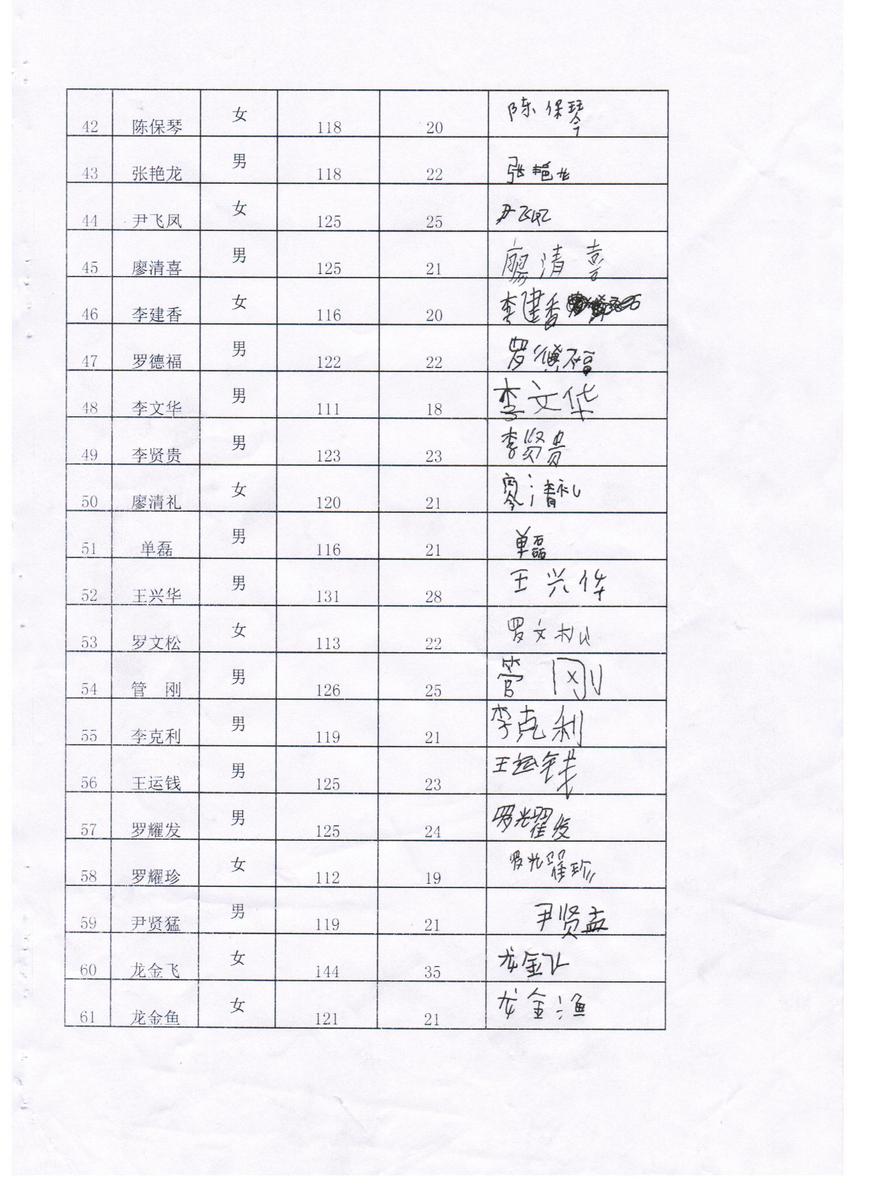 42 陈保琴 女 118 20 陈保琴
43 张艳龙 男 118 22 张艳龙
44 尹飞凤 女 125 25 尹飞凤
45 廖清喜 男 125 21 廖清喜
46 李建香 女 116 20 李建香
47 罗德福 男 122 22 罗德福
48 李文华 男 111 18 李文华
49 李贤贵 男 123 23 李贤贵
50 廖清礼 女 120 21 廖清礼
51 单磊 男 116 21 单磊
52 王兴华 男 131 28 王兴华
53 罗文松 女 113 22 罗文松
54 管 刚 男 126 25 管 刚
55 李克利 男 119 21 李克利
56 王运钱 男 125 23 王运钱
57 罗耀发 男 125 24 罗耀发
58 罗耀珍 女 112 19 罗耀珍
59 尹贤猛 男 119 21 尹贤孟
60 龙金飞 女 144 35 龙金飞
61 龙金鱼 女 121 21 龙金渔